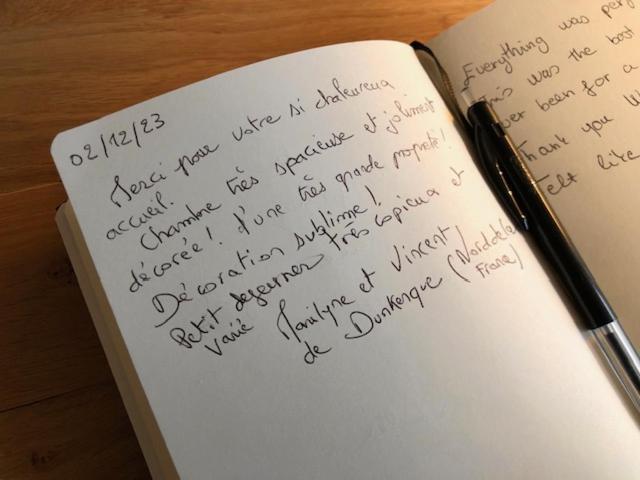 02/12/23
Merci pour votre si chaleureux
accueil.
Chambre très spacieuse et joliment
décorée! d'une très grande propreté!
Décoration sublime!
Petit dejeuner très copieux et
varié
Marilyne et Vincent
de Dunkerque (Nord de la
France)
Everything was per
This was the best
ver been for a
Thank you
felt like